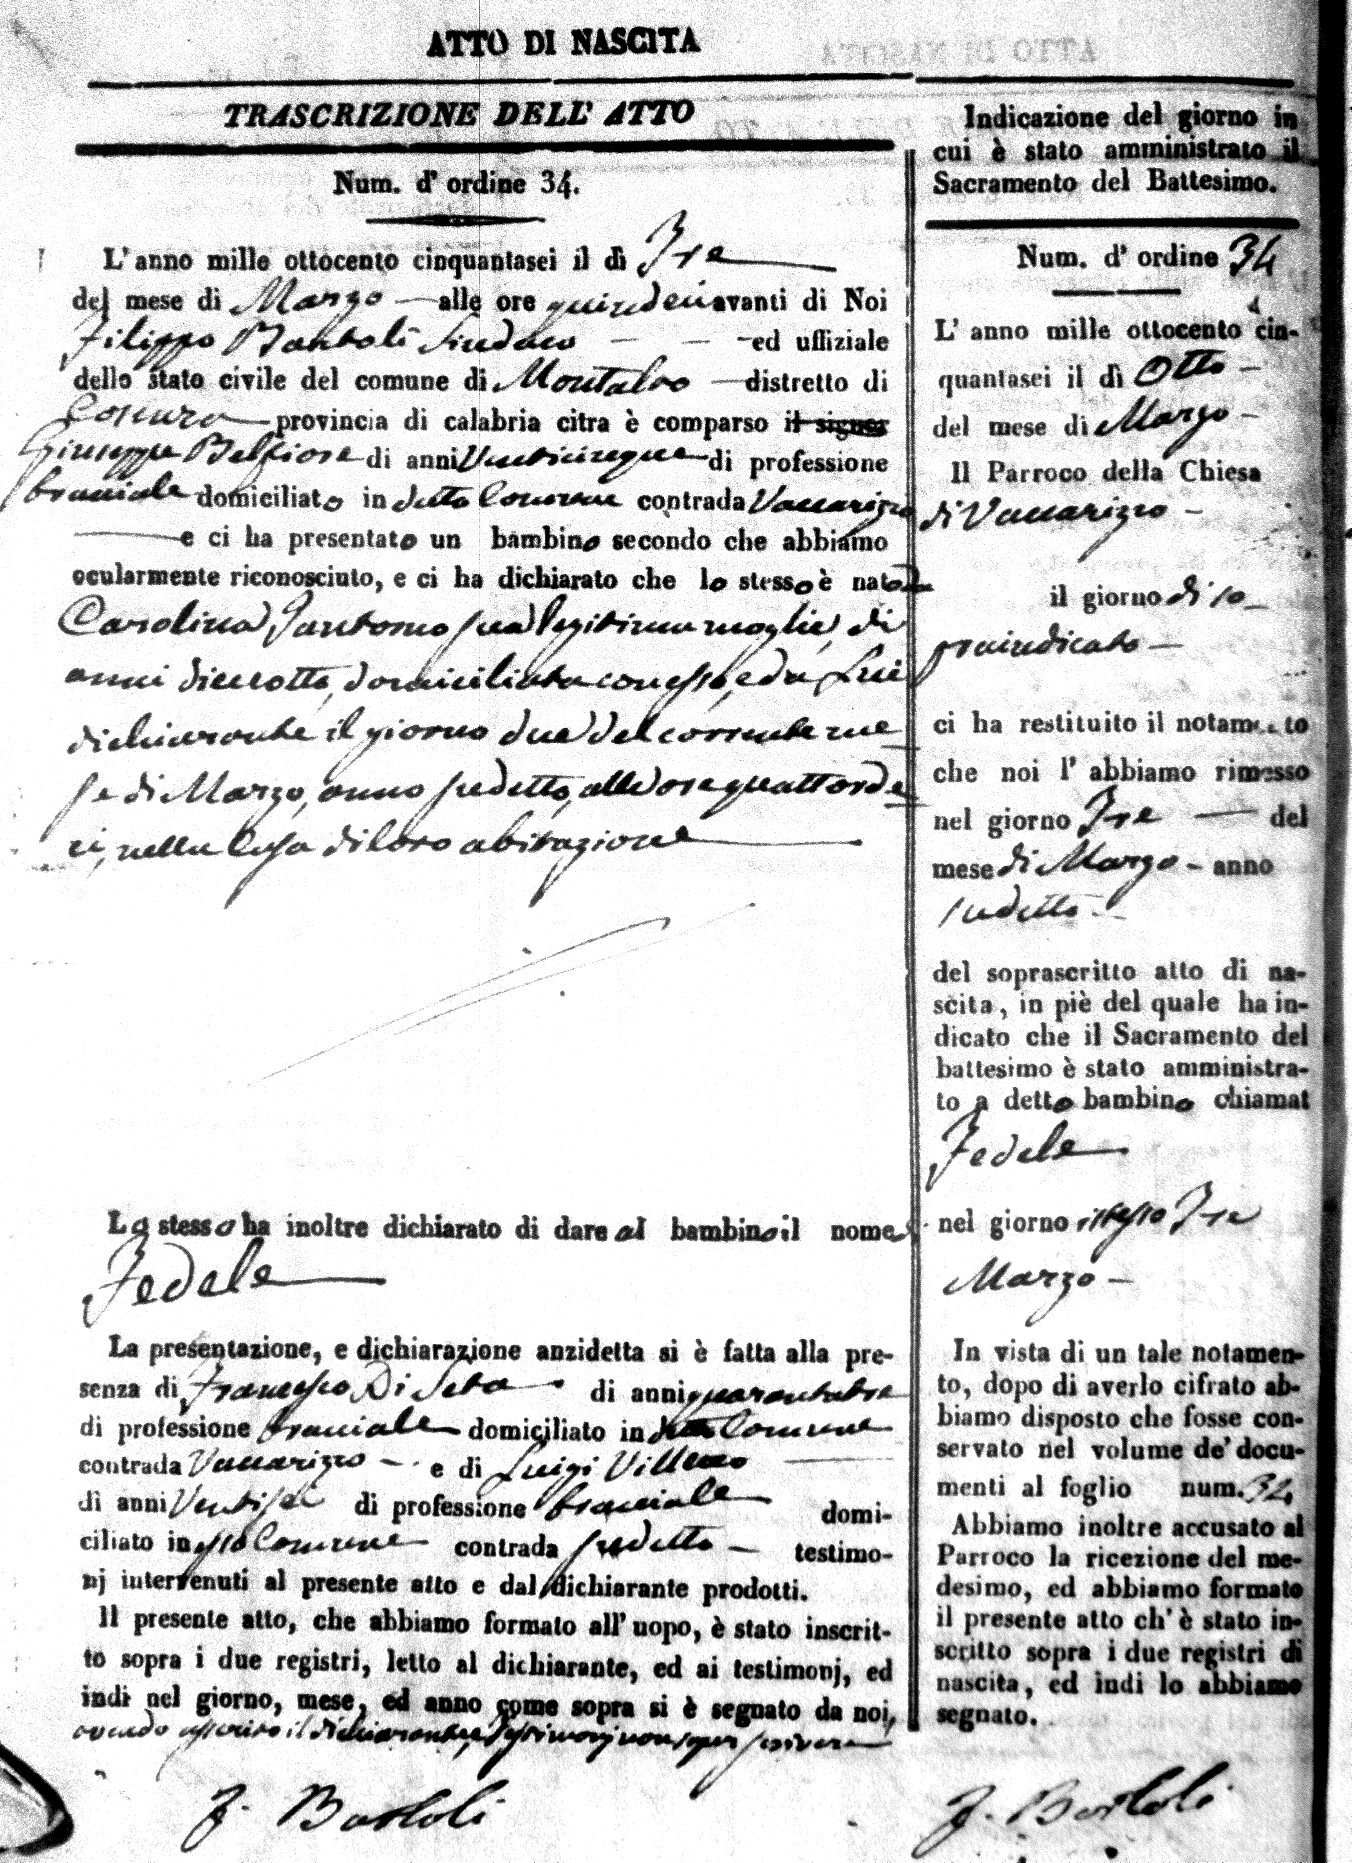 ATTO DI NASCITA
TRASCRIZIONE DELL' ATTO
Num. d' ordine 34.
L' anno mille ottocento cinquantasei il dì Tre
del mese di Marzo alle ore quindeci avanti di Noi
Filippo Bartoli Sindaco ed uffiziale
dello stato civile del comune di Montalto distretto di
Cosenza provincia di calabria citra è comparso il signor
Giuseppe Belfiore di anni Venticinque di professione
bracciale domiciliato in detto Comune contrada Vaccarizzo
e ci ha presentato un bambino secondo che abbiamo
ocularmente riconosciuto, e ci ha dichiarato che lo stesso è nato da
Carolina Santomo sua legitima moglie, di
anni dieciotto, domiciliata con esso, e da Lui
dichiarante il giorno due del corrente me
se di Marzo, anno sudetto, alle ore quattorde
ci, nella Casa di loro abitazione
Lo stesso ha inoltre dichiarato di dare al bambino il nome di
Fedele
La presentazione, e dichiarazione anzidetta si è fatta alla pre-
senza di Francesco Di Seta di anni quarantatre
di professione bracciale domiciliato in detto Comune
contrada Vaccarizzo e di Luigi
di anni Ventisei di professione bracciale domi-
ciliato in esso Comune contrada sudetta testimo-
nj intervenuti al presente atto e dal dichiarante prodotti.
Il presente atto, che abbiamo formato all' uopo, è stato inscrit-
to sopra i due registri, letto al dichiarante, ed ai testimonj, ed
indi nel giorno, mese, ed anno come sopra si è segnato da noi,
avendo asserito il dichiarante, e testimonj non saper scrivere
F. Bartoli
Indicazione del giorno in
cui è stato amministrato il
Sacramento del Battesimo.
Num. d' ordine 34
L' anno mille ottocento cin-
quantasei il dì Otto
del mese di Marzo
Il Parroco della Chiesa
di Vaccarizzo
il giorno di so
praindicato
ci ha restituito il notamento
che noi l' abbiamo rimesso
nel giorno Tre del
mese di Marzo anno
sudetto
del soprascritto atto di na-
scita, in piè del quale ha in-
dicato che il Sacramento del
battesimo è stato amministra-
to a detto bambino chiamat
Fedele
nel giorno istesso Tre
Marzo
In vista di un tale notamen-
to, dopo di averlo cifrato ab-
biamo disposto che fosse con-
servato nel volume de' docu-
menti al foglio num. 34
Abbiamo inoltre accusato al
Parroco la ricezione del me-
desimo, ed abbiamo formato
il presente atto ch' è stato in-
scritto sopra i due registri di
nascita, ed indi lo abbiamo
segnato.
F. Bartoli